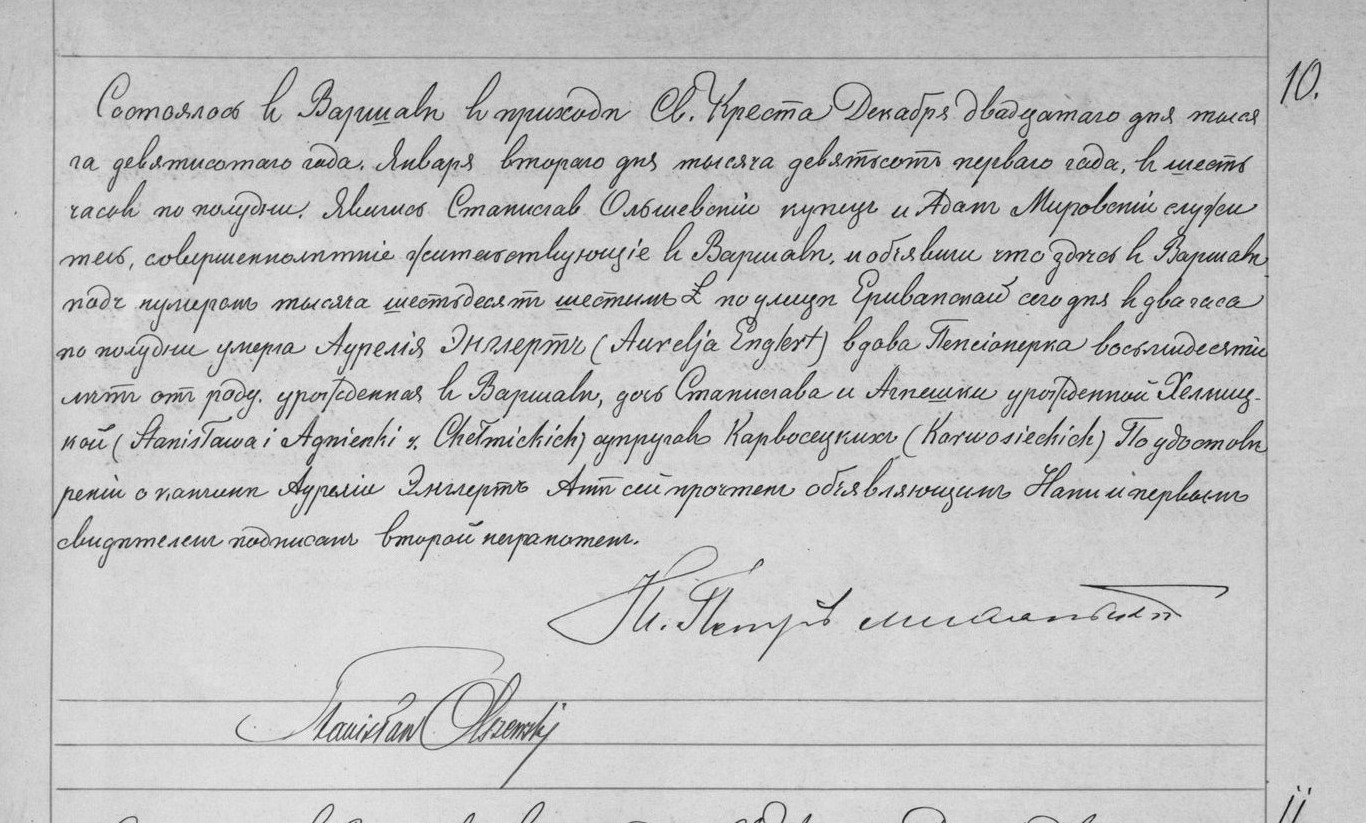 10.
Состоялось въ Варшавѣ въ приходѣ Св. Креста Декабря двадцатаго дня тыся
ча девятисотаго года. Января втораго дня тысяча девятьсотъ перваго года, въ шесть
часовъ по полудни. Явились Станиславъ Ольшевскій купецъ и Адамъ Мировскій служи
тель, совершеннолѣтніе жительствующіе въ Варшавѣ, и объявили что здѣсь въ Варшавѣ
подъ нумеромъ тысяча шестьдесятъ шестымъ Ł по улицѣ Ериванской сего дня въ два часа
по полудни умерла Аурелія Энглертъ (Aurelja Englert) вдова Пенсіонерка восьмидесяти
лѣтъ отъ роду. урожденная въ Варшавѣ, дочь Станислава и Агнешки урожденной Хелмиц-
кой (Stanisława i Agnieszki z Chełmickich) супруговъ Карвосецкихъ (Karwosieckich) По удостовѣ
реніи о кончинѣ Аурелiи Энглертъ Актъ сей прочтенъ объявляющимъ Нами и первымъ
свидѣтелемъ подписанъ второй неграмотенъ.
Кс. Петръ
Stanisław Olszewski
11